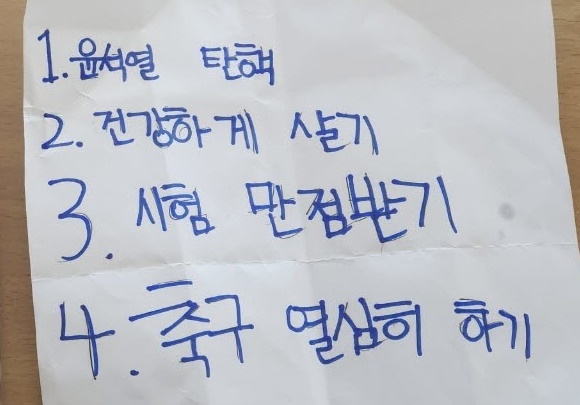 1. 윤석열 탄핵
2. 건강하게 살기
3. 시험 만점받기
4. 축구 열심히 하기